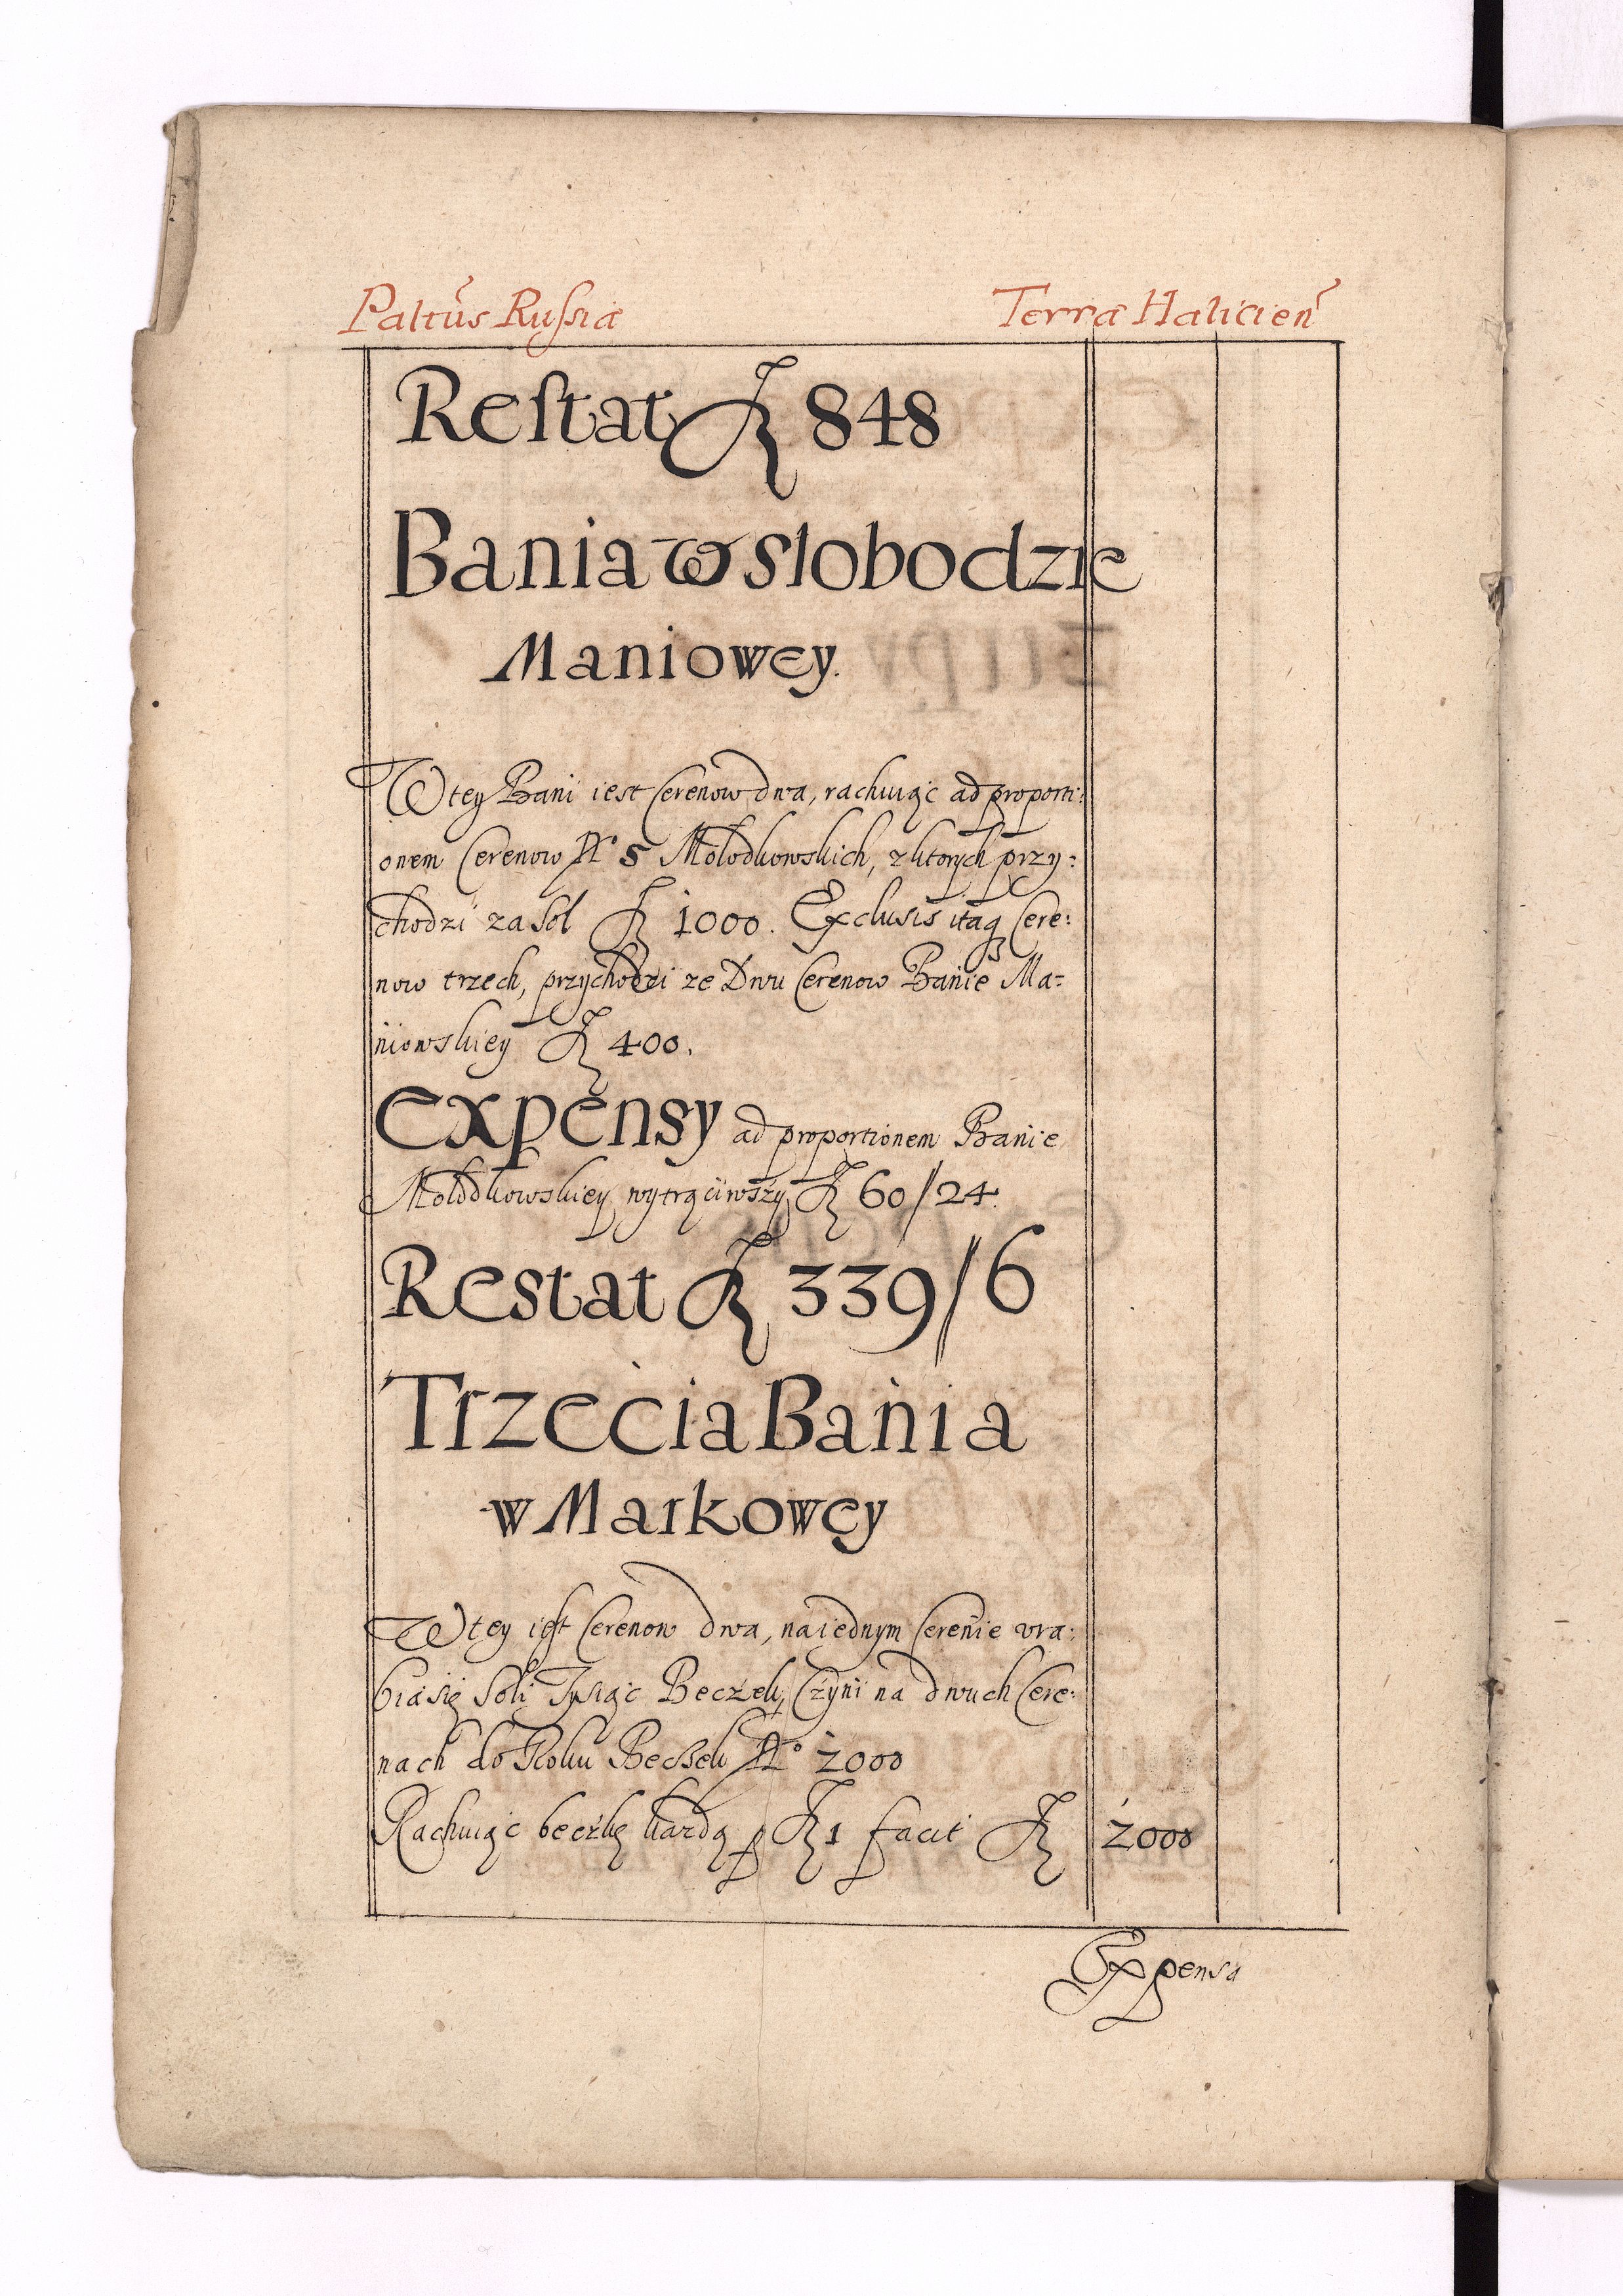 Paltũs Russia Terra Halicień
Restat fl 848
Bania w slobodzie
Maniowey.
W tey Bani iest Cerenow dwa, rachuiąc ad proporti:
onem Cerenow No 5 Mołodkowskich, z ktorych przy:
chodzi za Sol fl 1000. Exclusis itaq Cere:
now trzech, przychodzi ze Dwu Cerenow Banie Ma=
niowskiey fl 400.
Expensy ad proportionem Banie
Mołodkowskiey wytrąciwszy fl 60/24.
Restat fl 339/6
Trzecia Bania
w Markowey
W tey iest Cerenow dwa, na iednym Cerenie vra:
bia się Soli Tysiąc Beczek, Czyni na dwuch Cere:
nach do Roku Beczek No 2000
Rachuiąc beczkę kazdą p fl 1 facit fl 2000
Expensa